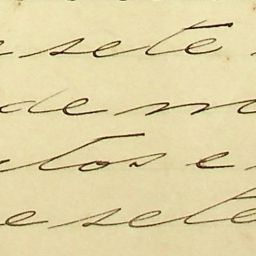 sete
de m
tos e
e sete